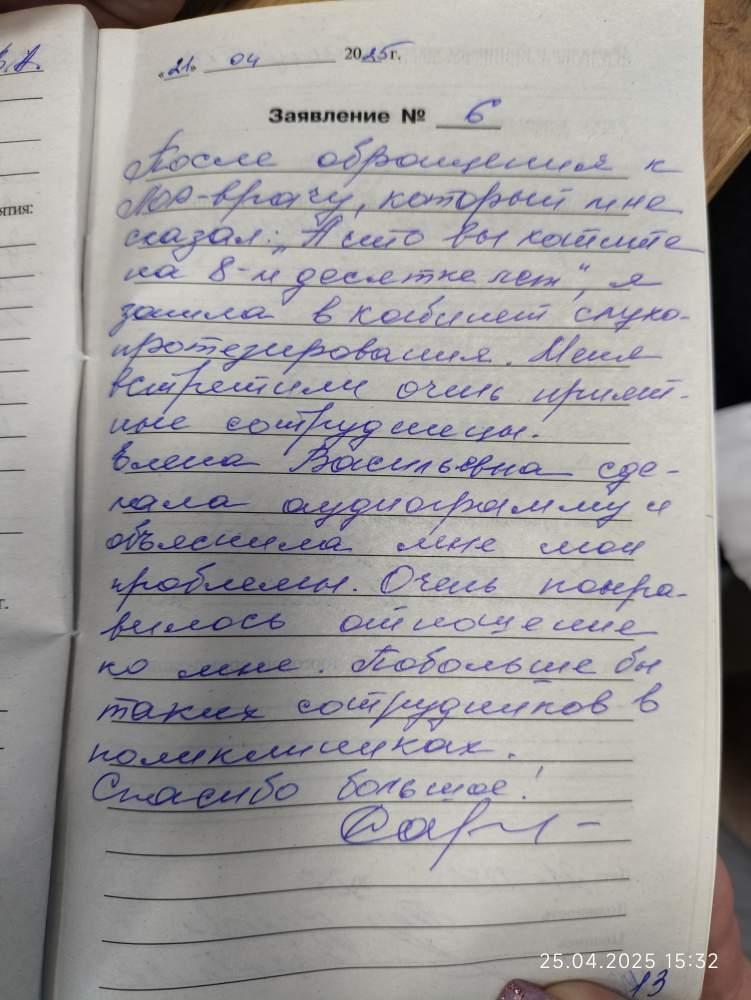 «21» 04 2025 г.
Заявление № 6
После обращения к
ЛОР-врачу, который мне
сказал: „А что вы хотите
на 8-м десятке лет", я
зашла в кабинет слухо-
протезирования. Меня
встретили очень прият-
ные сотрудницы.
Елена Васильевна сде-
лала аудиограмму и
объяснила мне мои
проблемы. Очень понра-
вилось отношение
ко мне. Побольше бы
таких сотрудников в
поликлиниках.
Спасибо большое!
ятия:
г.
13
25.04.2025 15:32